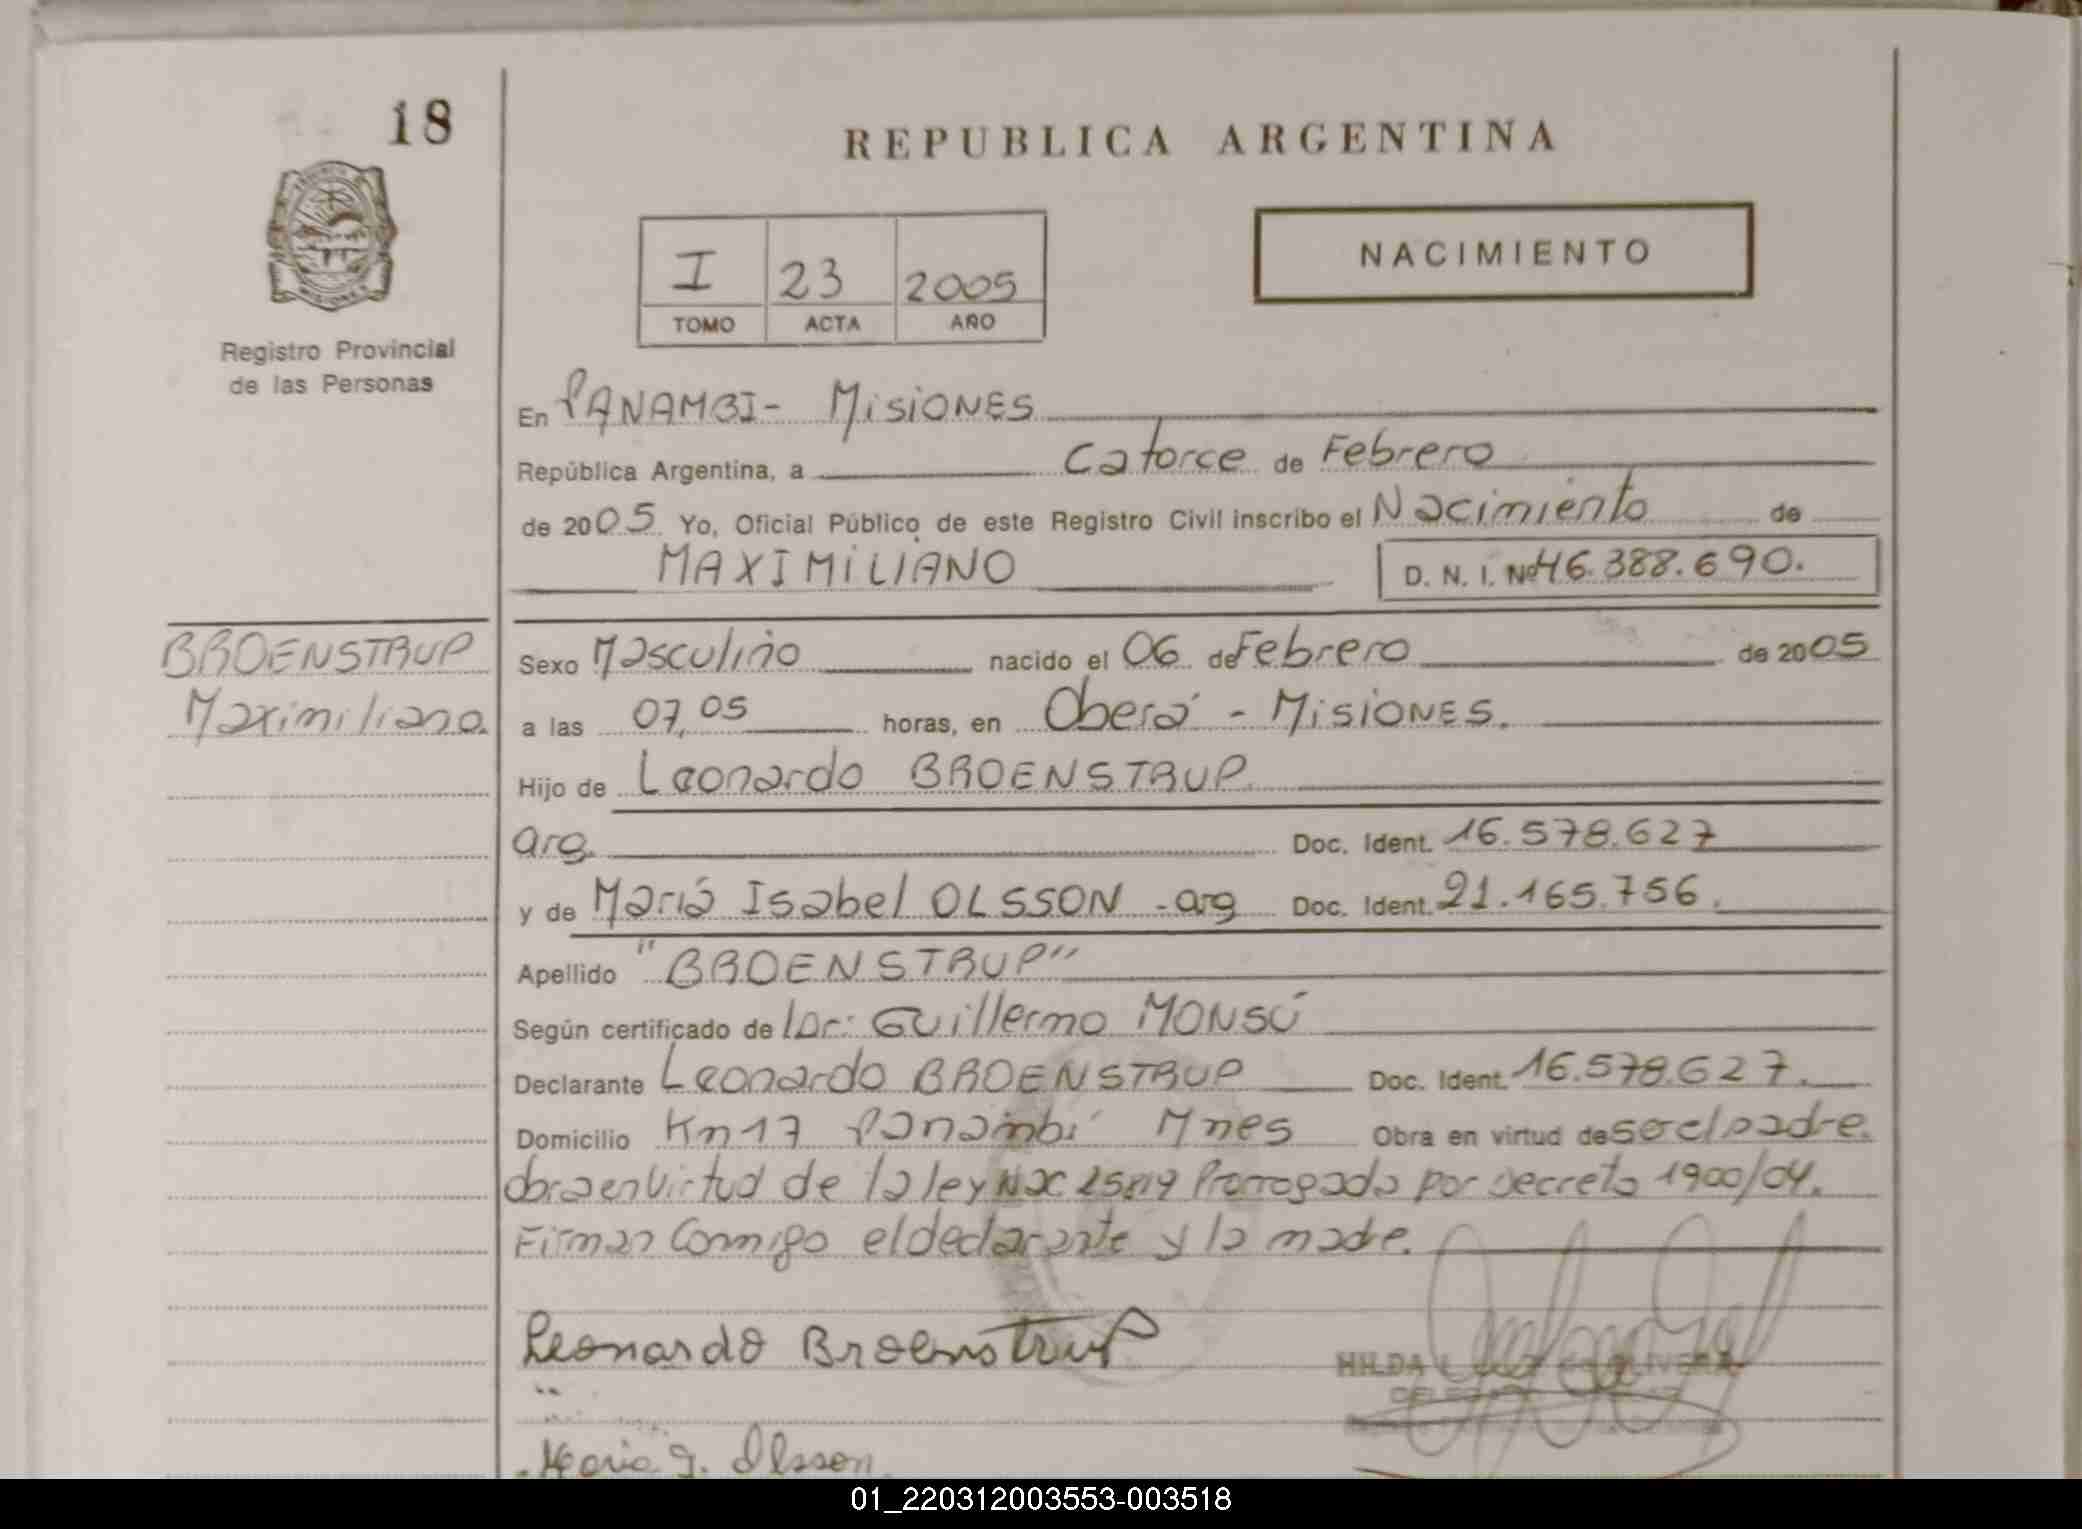 18
REPUBLICA ARGENTINA
MISIONES
Registro Provincial
de las Personas
I 23 2005
TOMO ACTA AÑO
NACIMIENTO
En PANAMBI- MisiONES
República Argentina, a Catorce de Febrero
de 2005 Yo, Oficial Público de este Registro Civil inscribo el Nacimiento de
MAXIMILIANO D. N. I. Nº 46.388.690.
BROENSTRUP
Maximiliano.
Sexo Masculino nacido el 06 de Febrero de 2005
a las 07,05 horas, en Oberá - MisiONES.
Hijo de Leonardo BROENSTRUP
arg Doc. Ident. 16.578.627
y de Mariá Isabel OLSSON - arg Doc. Ident. 21.165.756.
Apellido "BROENSTRUP"
Según certificado de Guillermo MONSÚ
Declarante Leonardo BROENSTRUP Doc. Ident. 16.578.627.
Domicilio Km17 Panambí Mnes Obra en virtud de ser el padre.
obra en virtud de la ley Nac Prorrogada por decreto 1900/04.
Firman Conmigo el declarante y la madre.
Leonardo Broenstrup
HILDA OLIVERA
Maria I. Olsson
01_220312003553-003518